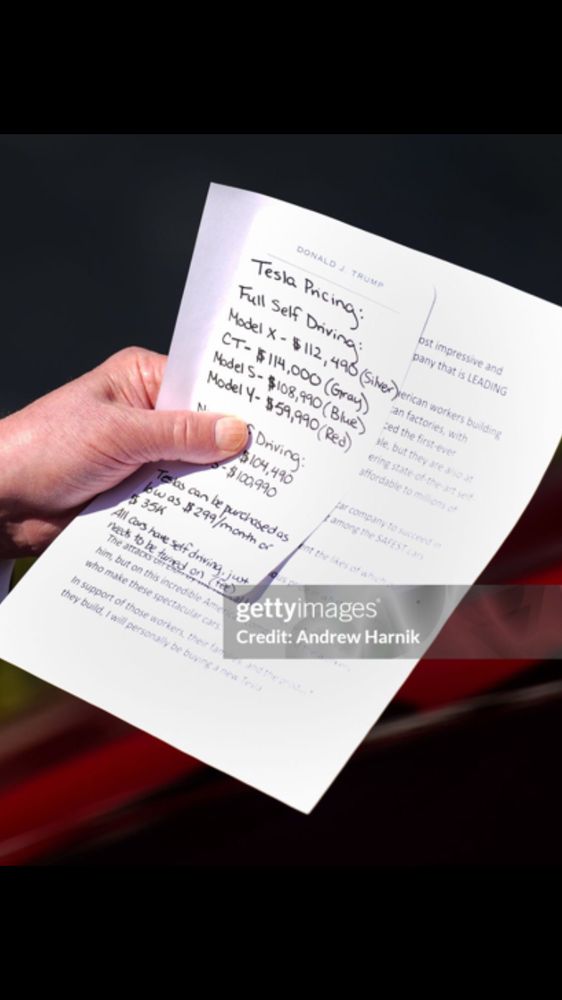 DONALD J. TRUMP
Tesla Pricing:
Full Self Driving:
Model X - $112,490 (Silver)
CT - $114,000 (Gray)
Model S - $108,990 (Blue)
Model Y - $59,990 (Red)
Driving:
$104,490
- $100,990
Teslas can be purchased as
low as $299/month or
$35K
All cars have self driving, just
needs to be turned on (fee)
most impressive and
company that is LEADING
American workers building
factories, with
the first-ever
but they are also at
state-of-the-art self
affordable to millions of
car company to succeed in
among the SAFEST cars
the likes of which
The attacks on
him, but on this incredible
who make these spectacular cars.
In support of those workers, their and the
they build, I will personally be buying a new Tesla
gettyimages
Credit: Andrew Harnik